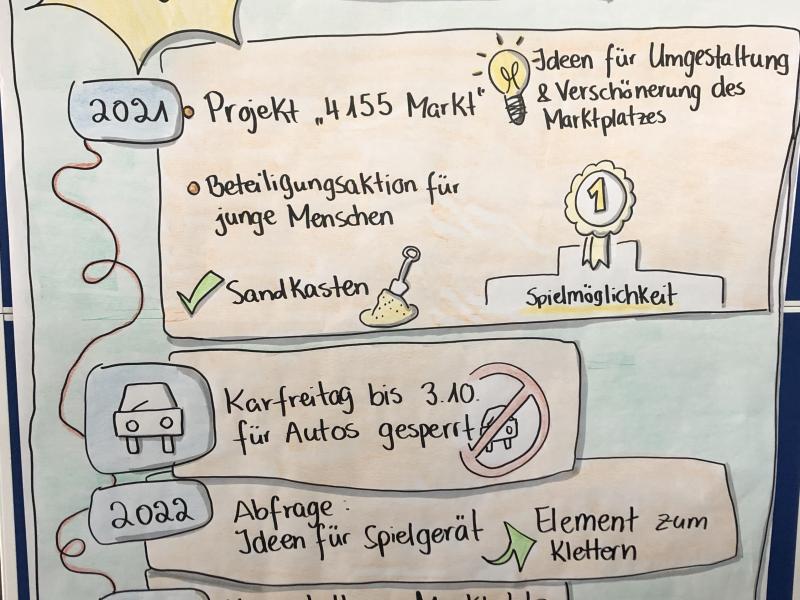 2021
Projekt „4155 Markt"
Ideen für Umgestaltung
& Verschönerung des
Marktplatzes
Beteiligungsaktion für
junge Menschen
1
Sandkasten
Spielmöglichkeit
Karfreitag bis 3.10.
für Autos gesperrt
2022
Abfrage:
Ideen für Spielgerät
Element zum
Klettern